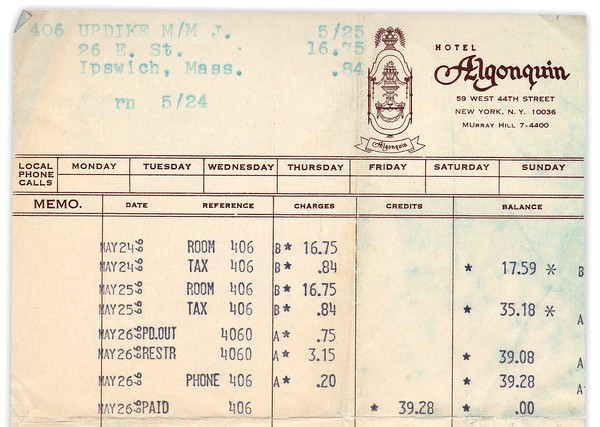 406 UPDIKE M/M J. 5/25
26 E. St. 16.75
Ipswich, Mass. .84
rn 5/24
HOTEL
Algonquin
59 WEST 44TH STREET
NEW YORK, N.Y. 10036
MURRAY HILL 7-4400
Algonquin
LOCAL PHONE CALLS MONDAY TUESDAY WEDNESDAY THURSDAY FRIDAY SATURDAY SUNDAY
MEMO. DATE REFERENCE CHARGES CREDITS BALANCE
MAY24 ROOM 406 B* 16.75
MAY24 TAX 406 B* .84 * 17.59 * B
MAY25 ROOM 406 B* 16.75
MAY25 TAX 406 B* .84 * 35.18 * A
MAY26 PD.OUT 4060 A* .75
MAY26 RESTR 4060 A* 3.15 * 39.08 A
MAY26 PHONE 406 A* .20 * 39.28 A
MAY26 PAID 406 * 39.28 * .00